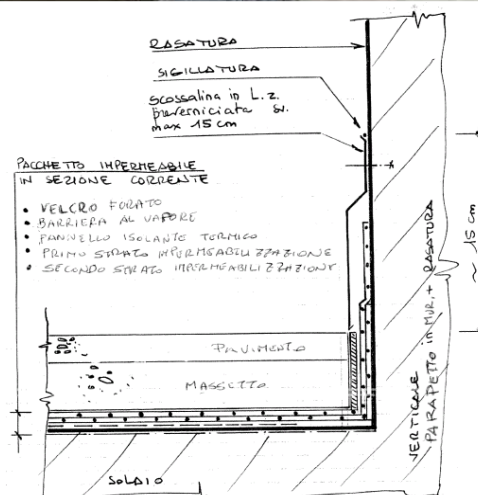 RASATURA
SIGILLATURA
scossalina in L.z.
preverniciata sv.
max 15 cm
PACCHETTO IMPERMEABILE
IN SEZIONE CORRENTE
• VELCRO FORATO
• BARRIERA AL VAPORE
• PANNELLO ISOLANTE TERMICO
• PRIMO STRATO IMPERMEABILIZZAZIONE
• SECONDO STRATO IMPERMEABILIZZAZIONE
~ 15 cm
VERTICALE
PARAPETTO in MUR. + RASATURA
PAVIMENTO
MASSETTO
SOLAIO